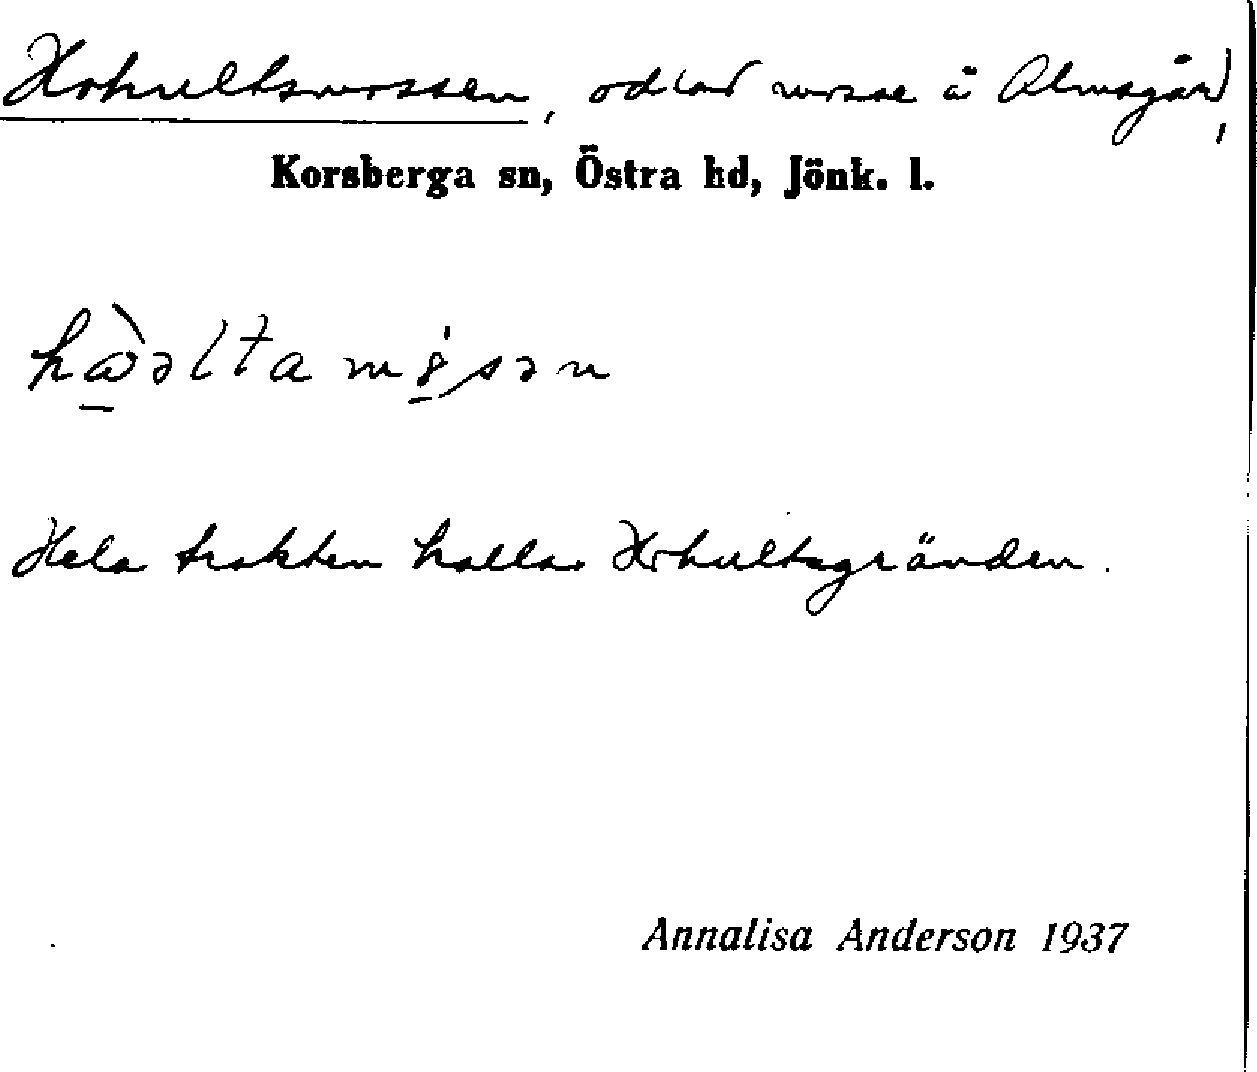 Hohultsmossen, odlad mosse å Almsgård,
Korsberga sn, Östra hd, Jönk. l.
Hela trakten kallas Hohultsgränden.
Annalisa Anderson 1937